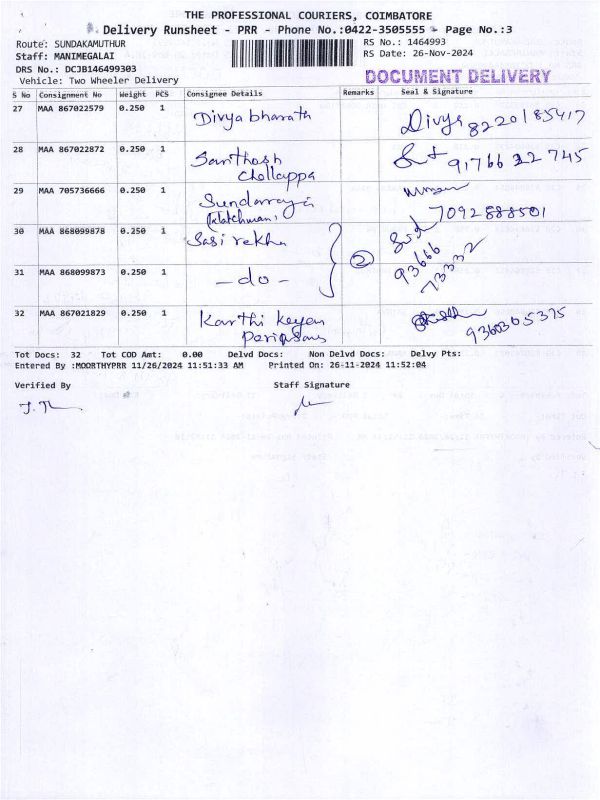 THE PROFESSIONAL COURIERS, COIMBATORE
Delivery Runsheet - PRR - Phone No.:0422-3505555 Page No.:3
Route: SUNDAKAMUTHUR RS No.: 1464993
Staff: MANIMEGALAI RS Date: 26-Nov-2024
DRS No.: DCJB146499303
Vehicle: Two Wheeler Delivery DOCUMENT DELIVERY
S No Consignment No Weight PCS Consignee Details Remarks Seal & Signature
27 MAA 867022579 0.250 1 Divya bharath Divya 8220185417
28 MAA 867022872 0.250 1 Santhosh
Chellappa 9176622745
29 MAA 705736666 0.250 1 Sundarraja
7092888501
30 MAA 868099878 0.250 1 Sasi rekha 2
93666
73332
31 MAA 868099873 0.250 1 -do-
32 MAA 867021829 0.250 1 Karthi keyan
9360305375
Tot Docs: 32 Tot COD Amt: 0.00 Delvd Docs: Non Delvd Docs: Delvy Pts:
Entered By :MOORTHYPRR 11/26/2024 11:51:33 AM Printed On: 26-11-2024 11:52:04
Verified By Staff Signature